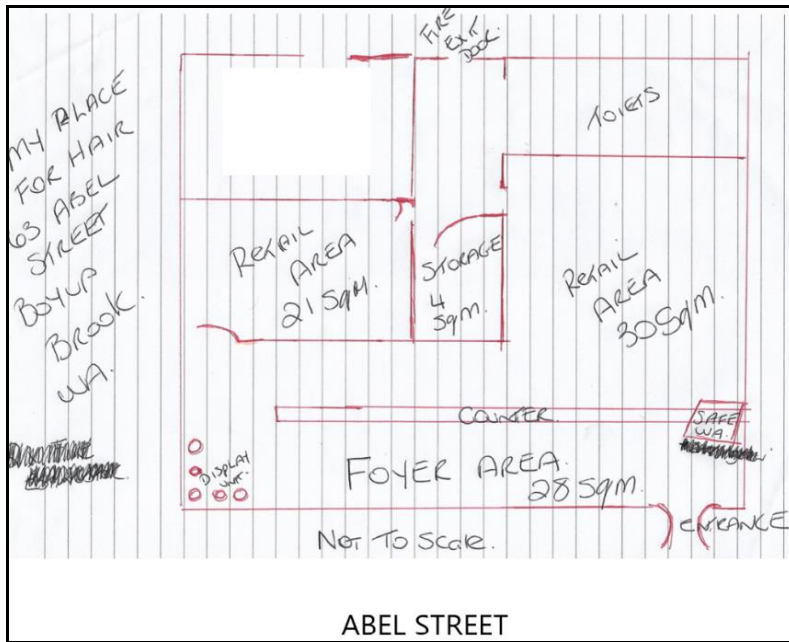 MY PLACE
FOR HAIR
63 ABEL
STREET
BOYUP
BROOK.
WA.
FIRE
EXIT
DOOR.
TOIETS
RETAIL
AREA
21 Sqm.
STORAGE
4
Sqm.
RETAIL
AREA
30 Sqm.
COUNTER
SAFE
WA.
DISPLAY
UNIT.
FOYER AREA.
28 Sqm.
ENTRANCE
NOT TO Scale.
ABEL STREET